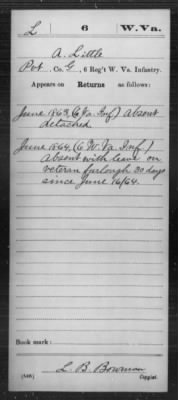 L | 6 | W. Va.
A. Little
Pvt., Co. G, 6 Reg't W. Va. Infantry.
Appears on Returns as follows:
June 1863, (6 Va. Inf.) Absent
detached.
June 1864, (6 W. Va. Inf.)
Absent with leave on
veteran furlough 30 days
since June 16/64.
Book mark:
(546)
L. B. Bowman
Copyist.